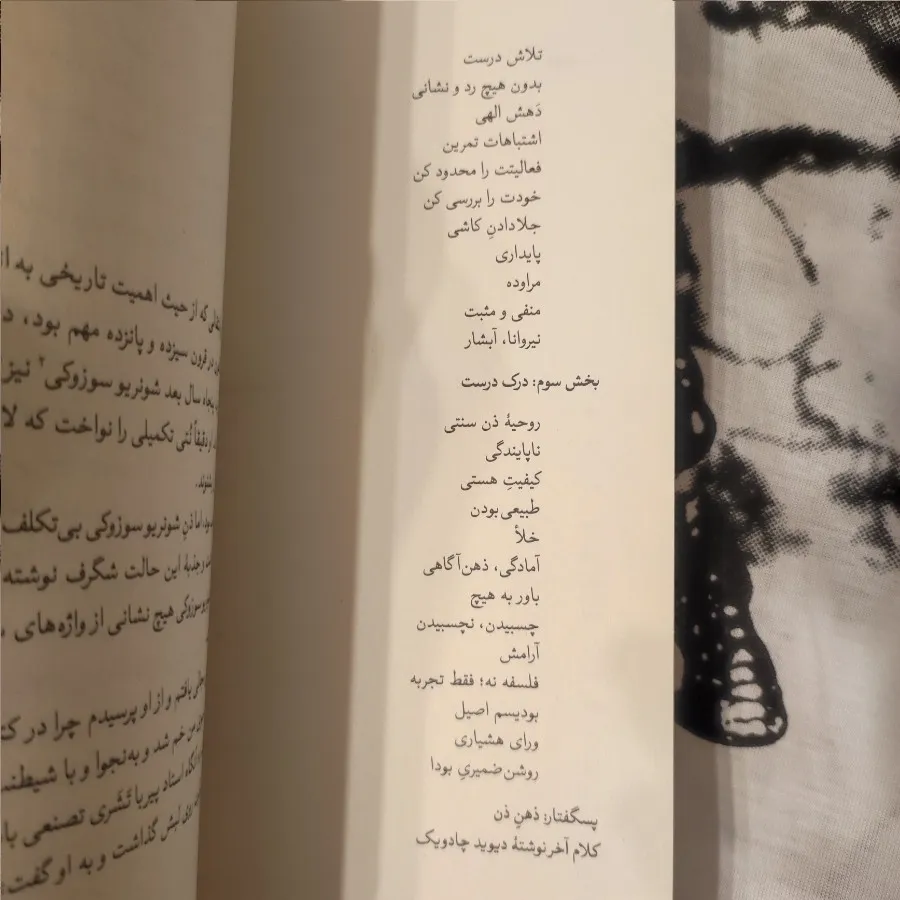 تلاش درست
بدون هیچ رد و نشانی
دَهش الهی
اشتباهات تمرین
فعالیتت را محدود کن
خودت را بررسی کن
جلادادنِ کاشی
پایداری
مراوده
منفی و مثبت
نیروانا، آبشار
بخش سوم: درک درست
روحیهٔ ذن سنتی
ناپایندگی
کیفیتِ هستی
طبیعی‌بودن
خلأ
آمادگی، ذهن‌آگاهی
باور به هیچ
چسبیدن، نچسبیدن
آرامش
فلسفه نه؛ فقط تجربه
بودیسم اصیل
ورای هشیاری
روشن‌ضمیریِ بودا
پسگفتار: ذهنِ ذن
کلام آخر نوشتهٔ دیوید چادویک
که از حیث اهمیت تاریخی به
در قرون سیزده و پانزده مهم بود،
سال بعد شونریو سوزوکی۲ نیز
دقیقاً نُتی تکمیلی را نواخت که
بشنوند.
اما ذنِ شونریو سوزوکی بی‌تکلف
و جذبهٔ این حالت شگرف نوشته
سوزوکی هیچ نشانی از واژه‌های
یافتم و از او پرسیدم چرا در
من خم شد و به‌نجوا و با
استاد پیر با تَشَری تصنعی
لبش گذاشت و به او گفت: